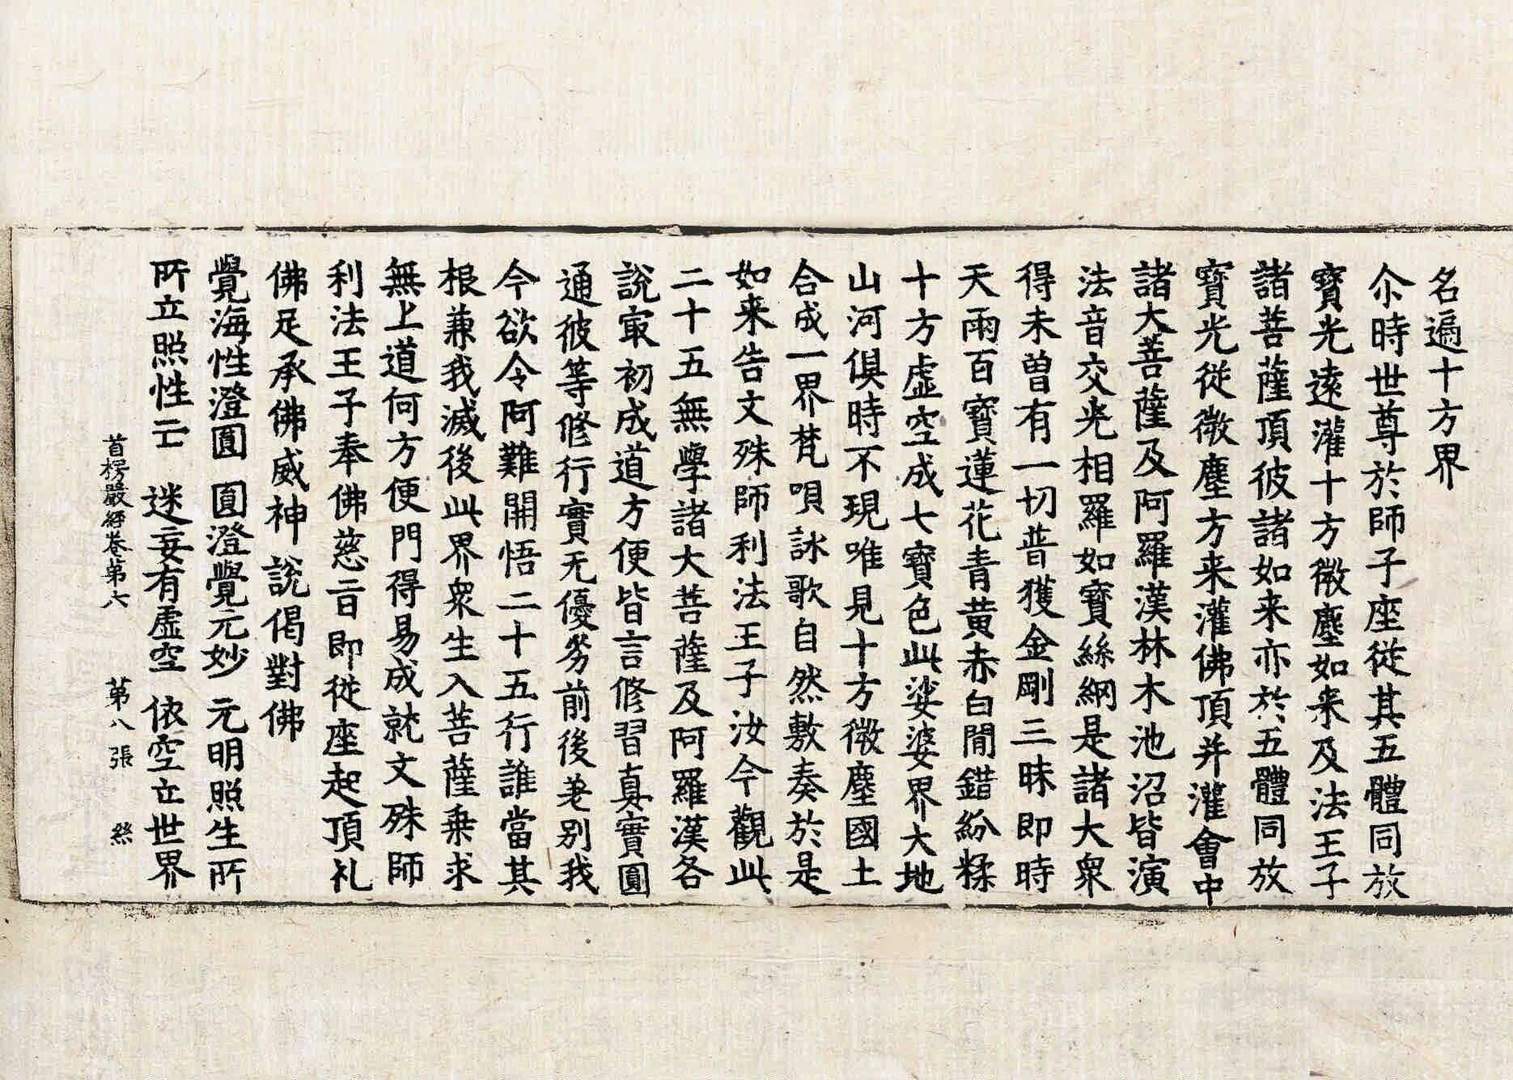 名遍十方界
尒時世尊於師子座從其五體同放
寳光遠灌十方微塵如来及法王子
諸菩薩頂彼諸如来亦於五體同放
寳光從微塵方来灌佛頂并灌會中
諸大菩薩及阿羅漢林木池沼皆演
法音交光相羅如寳絲網是諸大衆
得未曽有一切普獲金剛三昧即時
天雨百寳蓮花青黄赤白間錯紛糅
十方虚空成七寳色此娑婆界大地
山河俱時不現唯見十方微塵國土
合成一界梵唄詠歌自然敷奏於是
如来告文殊師利法王子汝今觀此
二十五無學諸大菩薩及阿羅漢各
說㝡初成道方便皆言修習真實圓
通彼等修行實无優劣前後差别我
今欲令阿難開悟二十五行誰當其
根兼我滅後此界衆生入菩薩乗求
無上道何方便門得易成就文殊師
利法王子奉佛慈旨即從座起頂礼
佛足承佛威神說偈對佛
覺海性澄圓　圓澄覺元妙　元明照生所
所立照性亡　迷妄有虚空　依空立世界
首楞嚴經卷第六　第八張　絲